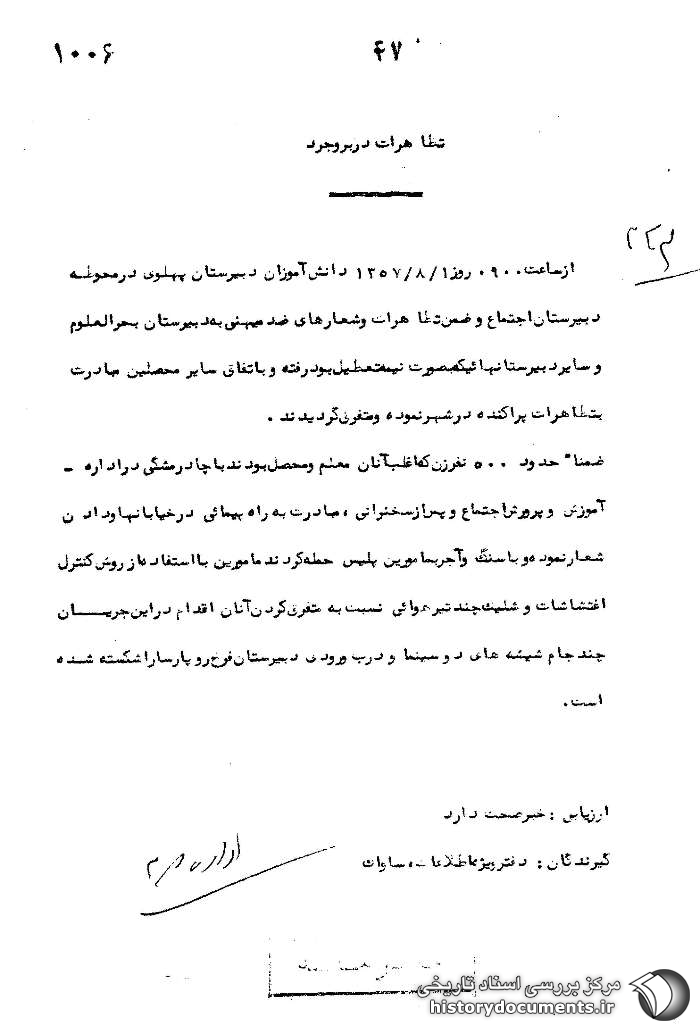 ۴۷
۱۰۰۶
تظاهرات در بروجرد
از ساعت ۰۹۰۰ روز ۱۳۵۷/۸/۱ دانش آموزان دبیرستان پهلوی در محوطه
دبیرستان اجتماع و ضمن تظاهرات وشعارهای ضد میهنی به دبیرستان بحرالعلوم
و سایر دبیرستانهائیکه بصورت نیمه تعطیل بود رفته و باتفاق سایر محصلین مبادرت
بتظاهرات پراکنده در شهر نموده و متفرق گردیدند .
ضمنا" حدود ۵۰۰ نفر زن که اغلب آنان معلم ومحصل بودند با چادر مشگی در اداره -
آموزش و پرورش اجتماع و پس از سخنرانی ، مبادرت به راه پیمائی در خیابانها و دادن
شعار نموده و با سنگ وآجر بمامورین پلیس حمله کردند مامورین با استفاده از روش کنترل
اغتشاشات و شلیک چند تیر هوائی نسبت به متفرق کردن آنان اقدام در این جریان
چند جام شیشه های دو سینما و درب ورودی دبیرستان فرخ رو پارسا را شکسته شده
است .
ارزیابی : خبر صحت دارد
گیرندگان : دفتر ویژه اطلاعات ، ساواک
اداره سوم
مرکز بررسی اسناد تاریخی
historydocuments.ir